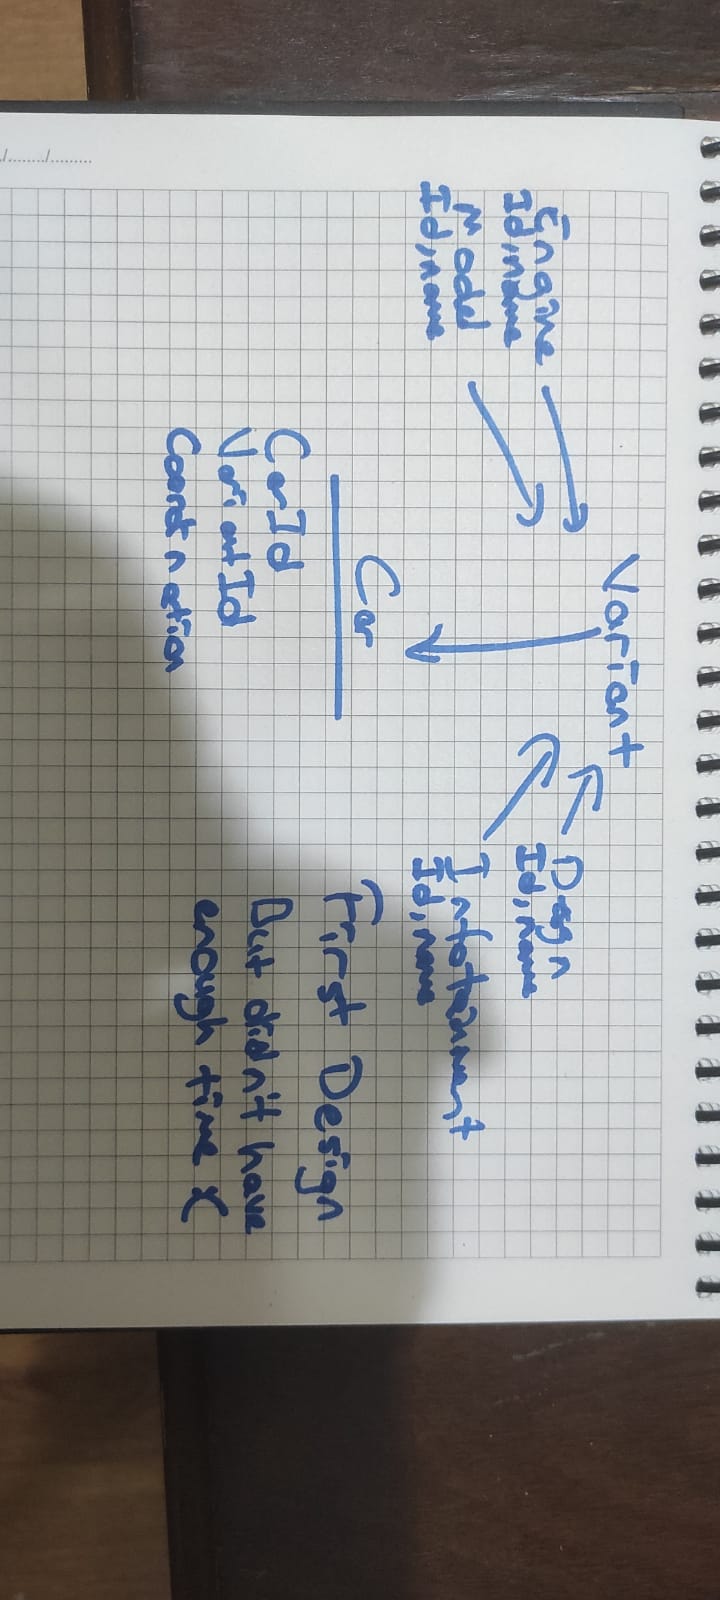 Variant
Engine
Id, name
Model
Id, name
Design
Id, name
Infotainment
Id, name
Car
CarId
VariantId
First Design
But didn't have
enough time